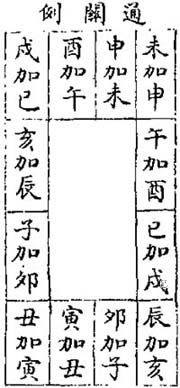 通關例
未加申
申加未
酉加午
戌加巳
午加酉
亥加辰
巳加戌
子加夘
辰加亥
夘加子
寅加丑
丑加寅